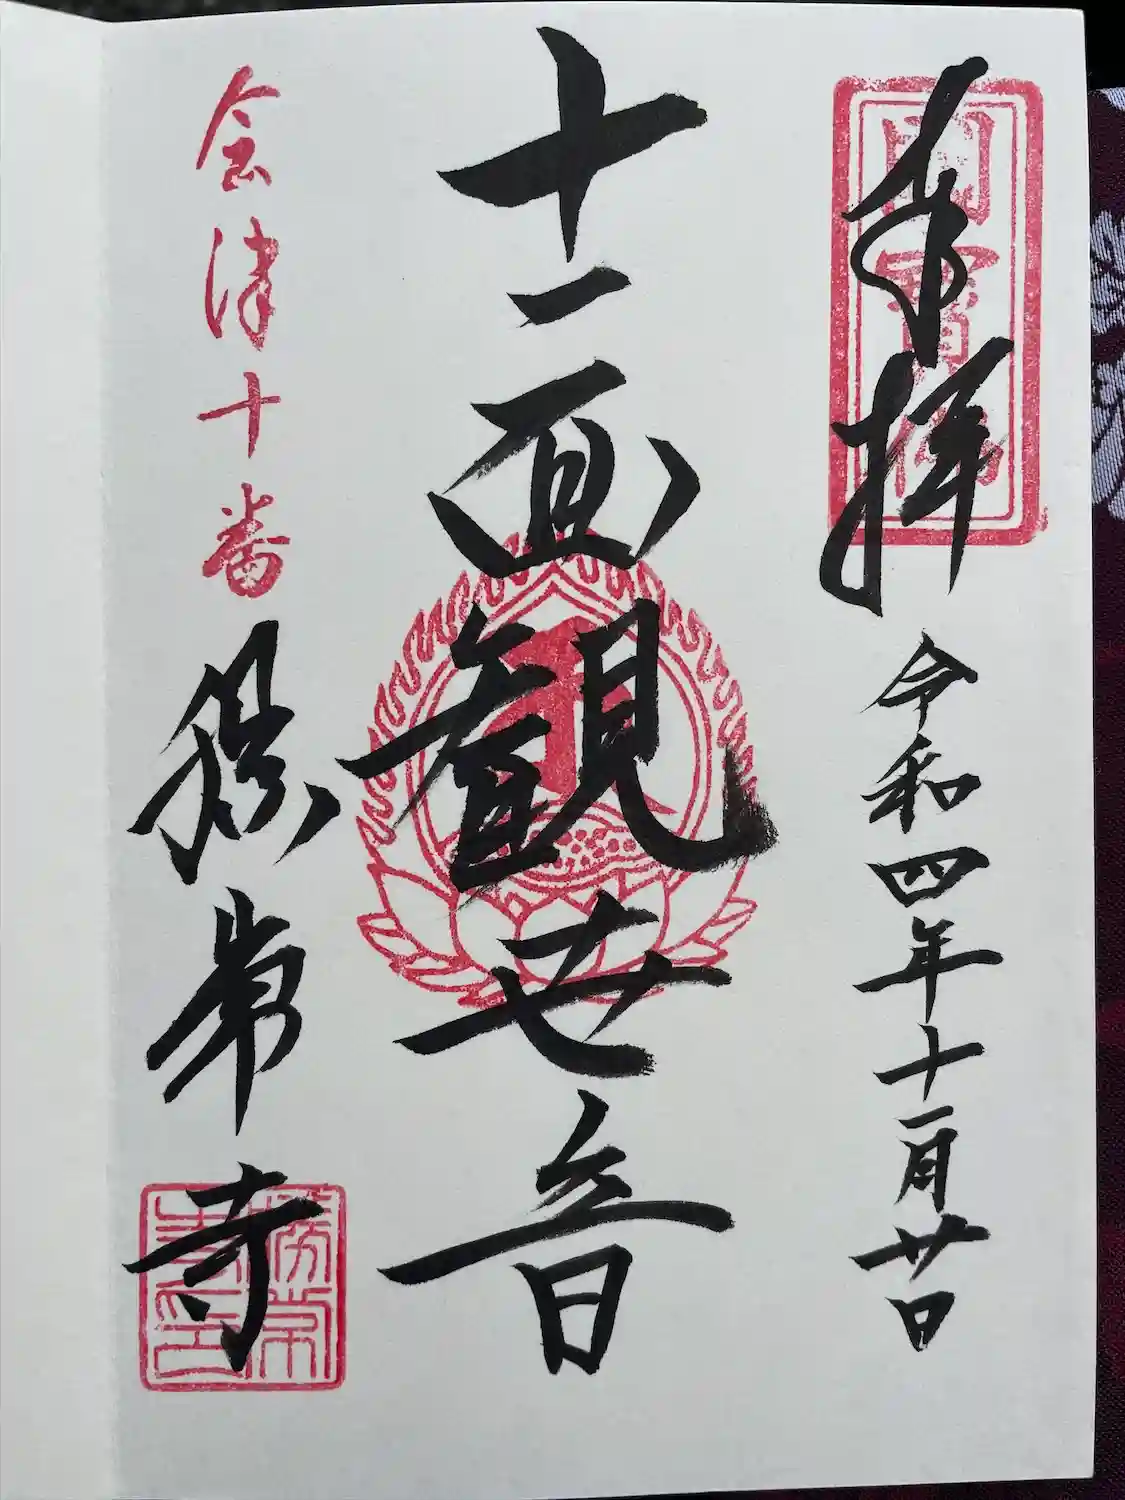 奉拝
令和四年十一月廿日
十一面観世音
会津十番
勝常寺
勝常寺印